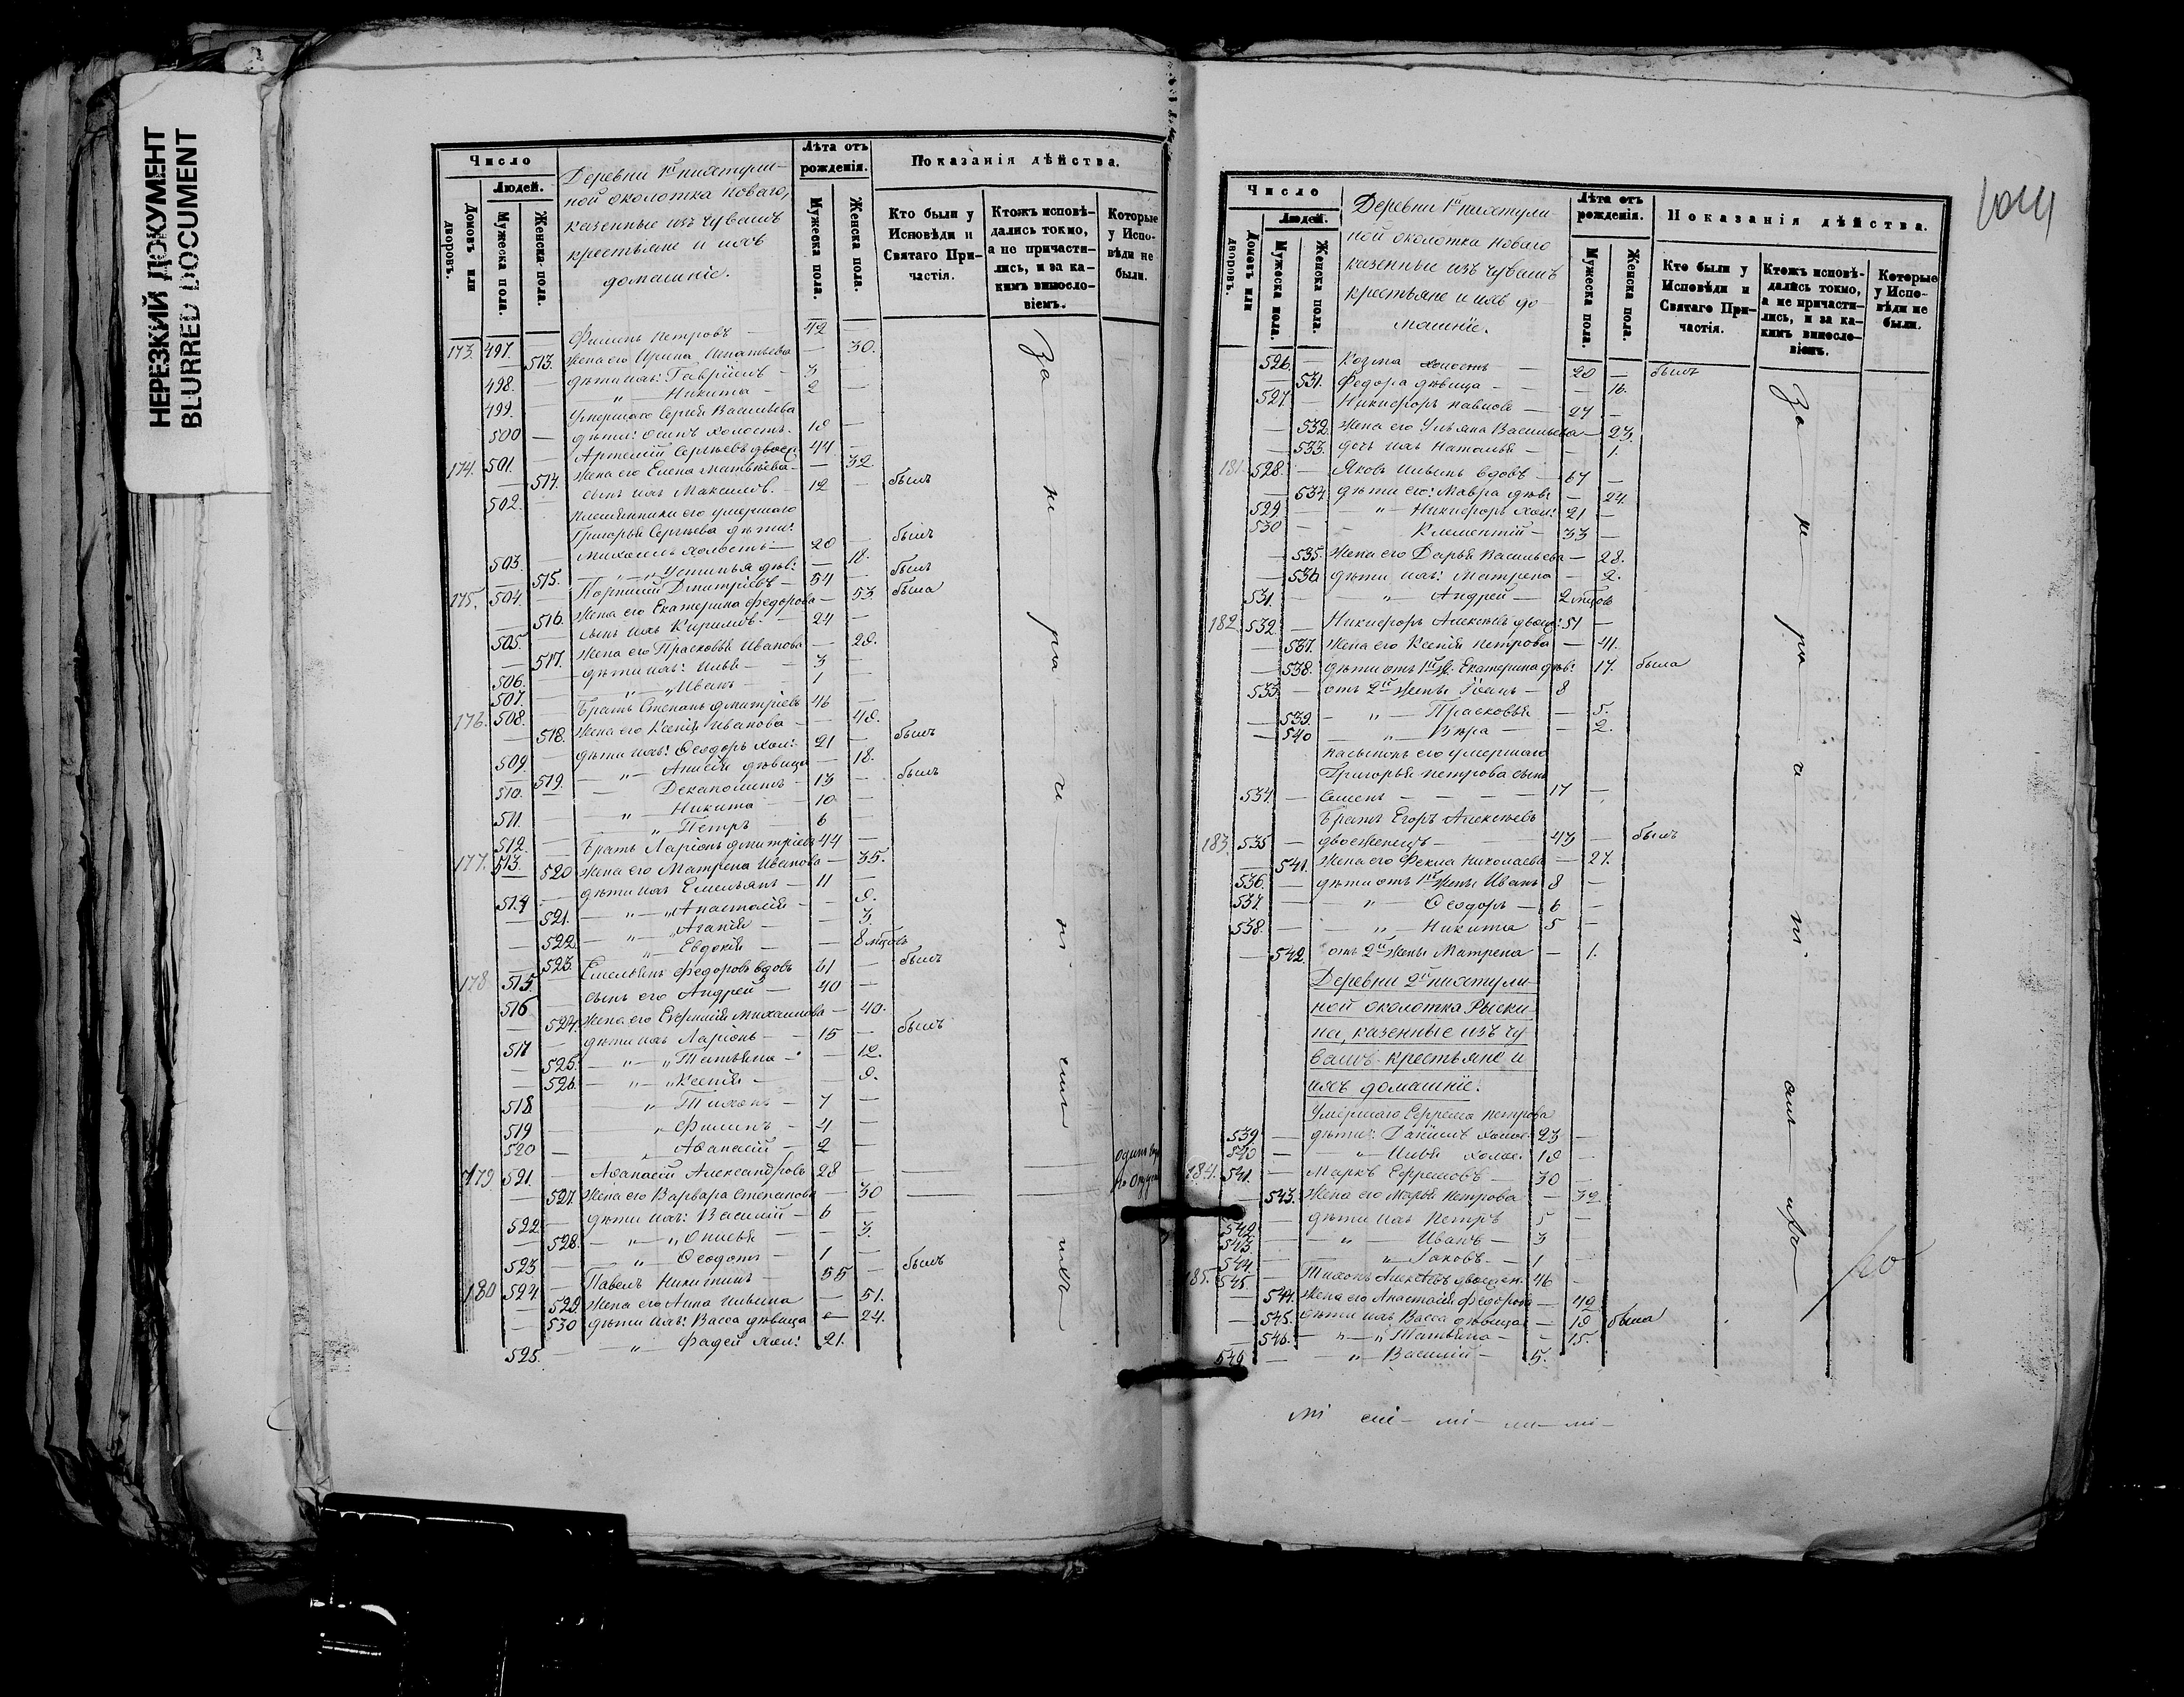 НЕРЕЗКИЙ ДОКУМЕНТ
BLURRED DOCUMENT
Число
Людей.
Домовъ или дворовъ.
Мужеска пола.
Женска пола.
Деревни 1й
ной околотка Новаго,
казенные изъ чувашъ
крестьяне и ихъ
домашніе.
Лѣта отъ рожденія.
Мужеска пола.
Женска пола.
Показанія дѣйства.
Кто были у Исповѣди и Святаго Причастія.
Ктожъ исповѣдались токмо, а не причастились, и за какимъ винословіемъ.
Которые у Исповѣди не были.
173. 497. — Филипъ Петровъ — 42 —
— 513. Жена его Ирина Игнатьева — 30.
498. — дѣти ихъ: Гавріилъ — 3 —
499. — „ — Никита — 2 —
Умершаго Сергѣя Васильева
500 — дѣти: Осипъ холостъ. 18 —
174. 501. — Артемій Сергѣевъ двоеж. 44 —
— 514. Жена его Елена Матвѣева — 32
502. — сынъ ихъ Максимъ. — 12 — былъ
Племянники его умершаго
Григорья Сергѣева дѣти:
503. — Михаилъ холостъ — 20 — былъ
— 515. — „ — Устинья дѣв: — 18.
175. 504. — Порфирій Дмитріевъ — 54 — былъ
— 516. Жена его Екатерина Федорова — 53 была
505. — сынъ ихъ Кирилъ. — 24 —
— 517. Жена его Прасковья Иванова — 28.
506. — дѣти ихъ: Илья — 3 —
507. — „ — Иванъ — 1 —
176. 508. — Братъ Степанъ Дмитріевъ 46 —
— 518. Жена его Ксенія Иванова — 48.
509. — дѣти ихъ: Ѳеодоръ хол: — 21 — былъ
— 519. — „ — Анисія дѣвица — 18.
510. — — 13 — былъ
511. — „ — Никита — 10 —
512. — „ Петръ — 6
177. 513. — Братъ Ларіонъ Дмитріевъ 44 —
— 520 Жена его Матрена Иванова — 35.
514 — дѣти ихъ Емельянъ — 11 —
— 521. — „ — Анастасія — 9.
— 522. — „ — Агапія — 3
— 523. „ Евдокія — 8 мѣсцовъ
178 515. — Емельянъ Федоровъ вдовъ 61 — былъ
516 — сынъ его Андрей — 40 —
— 524. Жена его Евфимія Михаилова — 40.
517 — дѣти ихъ Ларіонъ — 15 — былъ
— 525. — „ — Татьяна — 12.
— 526. — „ — Ксенія — 9.
518 — „ — Тихонъ — 7 —
519 — „ Филипъ — 4 —
520 — „ Аѳанасій — 2 —
179 521. — Аѳанасій Александровъ 28 —
— 527. Жена его Варвара Степанова — 30
522 — дѣти ихъ: Василій — 6 —
— 528. — „ — Онисья — 3.
523 — „ — Ѳеодотъ — 1 —
180 524 — Павелъ Никитинъ — 55 — былъ
— 529. Жена его Анна Ильина — 51.
— 530 дѣти ихъ: Васса дѣвица — 24.
525. — „ — Фадей хол: 21.
За не ра че ні емъ ихъ
Число
Людей.
Домовъ или дворовъ.
Мужеска пола.
Женска пола.
Деревни 1й
ной околотка Новаго
казенные изъ чувашъ
крестьяне и ихъ до-
машніе.
Лѣта отъ рожденія.
Мужеска пола.
Женска пола.
Показанія дѣйства.
Кто были у Исповѣди и Святаго Причастія.
Ктожъ исповѣдались токмо, а не причастились, и за какимъ винословіемъ.
Которые у Исповѣди не были.
526. — Козма холостъ — 20 — былъ
— 531. Федора дѣвица — 16.
527. — Никифоръ Павловъ — 27 —
— 532. Жена его Ульяна Васильева — 23.
— 533. дочь ихъ Наталья — 1.
181. 528. — Яковъ Ильинъ вдовъ — 67 —
— 534. дѣти его: Мавра дѣв: — 24.
529. — „ — Никифоръ хол: 21 —
530 — — Клементій — 33 —
— 535. Жена его Дарья Васильева — 28.
— 536 дѣти ихъ: Матрена — 2.
531. — „ — Андрей — 2 мѣсцовъ
182. 532. — Никифоръ Алексѣевъ двоеж: 51 —
— 537. Жена его Ксенія Петрова — 41.
— 538. дѣти отъ 1й ж. Екатерина дѣв: 17. была
533 — отъ 2й жены Іоанъ — 8
— 539. — „ — Прасковья — 5.
— 540 — „ — Вѣра — 2.
Пасынокъ его умершаго
Григорья Петрова сынъ
534. — Семенъ — — — 17 —
Братъ Егоръ Алексѣевъ
183. 535 — двоеженецъ — 43 — былъ
— 541. Жена его Фекла Николаева — 27.
536. — дѣти отъ 1й жены Иванъ 8 —
537 — „ — Ѳеодоръ — 6 —
538. — „ — Никита 5 —
— 542. отъ 2й жены Матрена — 1.
Деревни 2й
ной околотка
на, казенные изъ чу-
вашъ крестьяне и
ихъ домашніе.
Умершаго Ефрема Петрова
539. — дѣти: Даніилъ холос: 23 —
540 — „ — Илья холос: 18 —
184. 541. — Маркъ Ефремовъ — 30 —
— 543. Жена его Марья Петрова — 32
542 — дѣти ихъ Петръ 5 —
543. — „ — Иванъ — 3
544. — „ Іаковъ — 1 —
185. 545. — Тихонъ Алексѣевъ двоежен. 46 —
— 544. Жена его Анастасія Федорова — 42
— 545. дѣти ихъ Васса дѣвица — 18 была
— 546. — „ — Татьяна — 15.
546 — „ — Василій — 5.
За не ра че ні емъ